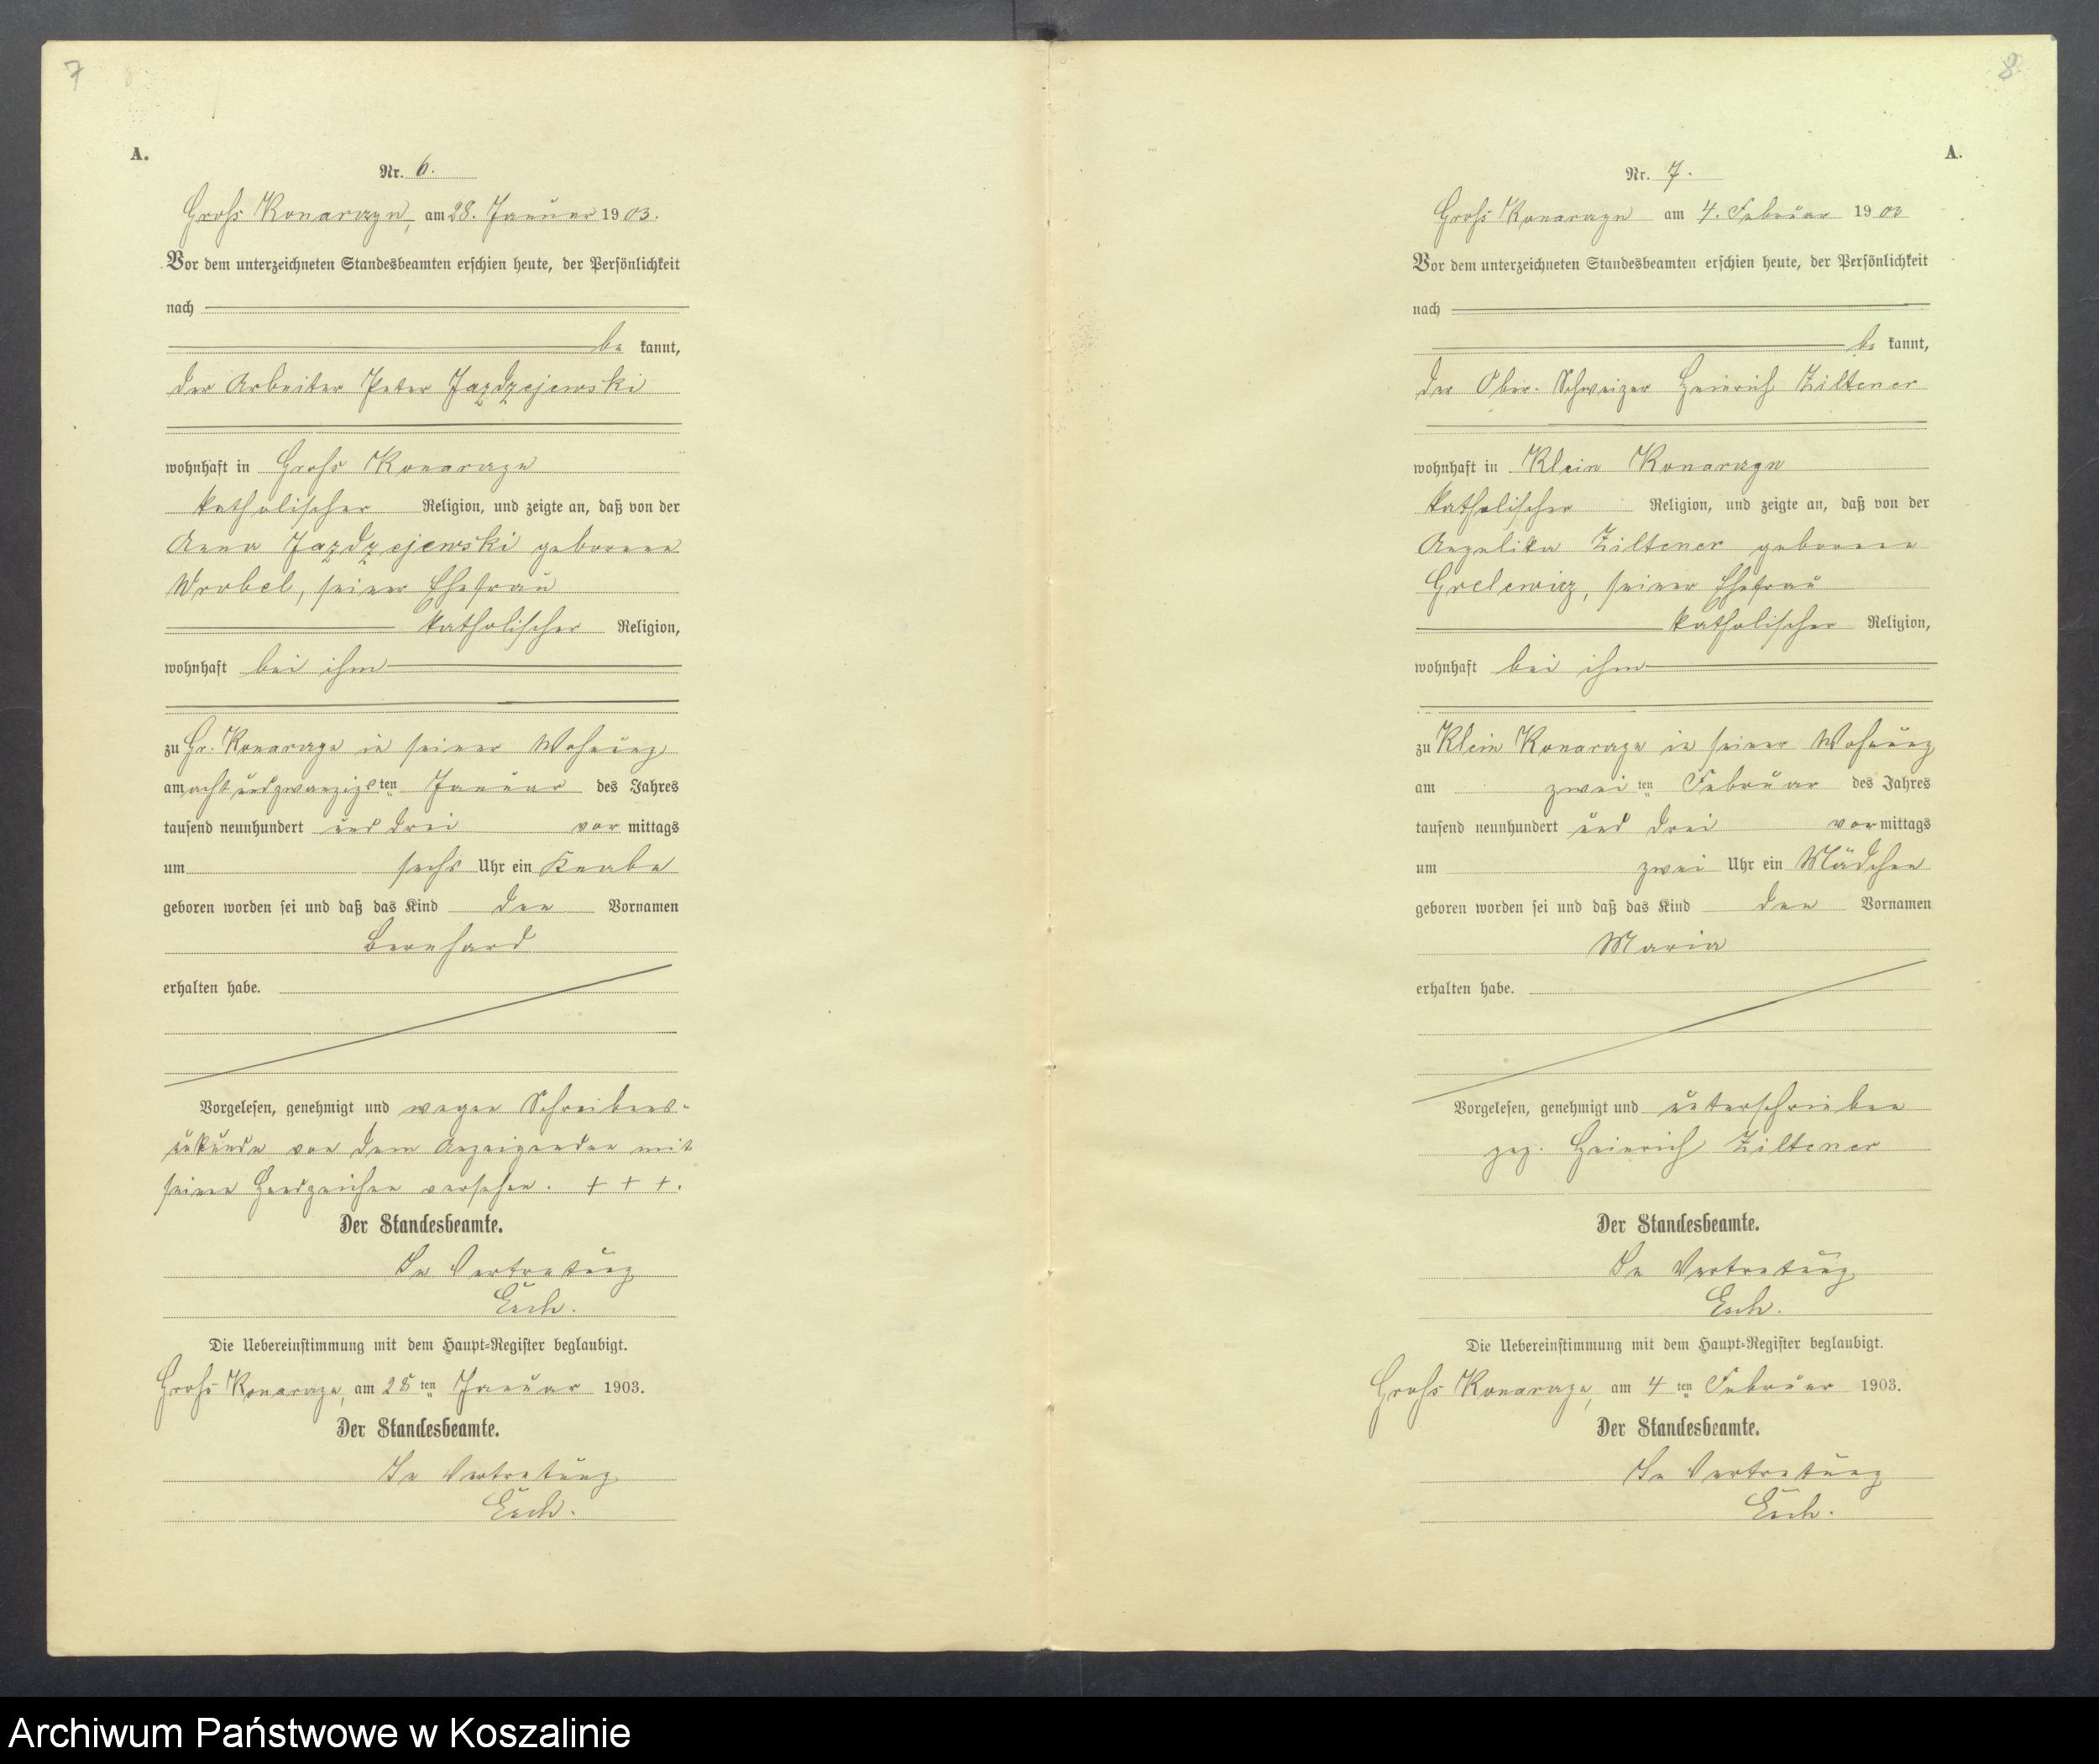 7
A.
Nr. 6.
Groß Konarczyn, am 28. Januar 1903.
Vor dem unterzeichneten Standesbeamten erschien heute, der Persönlichkeit
nach
be kannt,
der Arbeiter Peter Jazdzejewski
wohnhaft in Groß Konarczyn
katholischer Religion, und zeigte an, daß von der
Anna Jazdzejewski geborene
Wrobel, seiner Ehefrau
katholischer Religion,
wohnhaft bei ihm
zu Gr. Konarczyn in seiner Wohnung
am acht und zwanzigsten Januar des Jahres
tausend neunhundert und drei vor mittags
um sechs Uhr ein Knabe
geboren worden sei und daß das Kind den Vornamen
Bernhard
erhalten habe.
Vorgelesen, genehmigt und wegen Schreibens-
unkunde von dem Anzeigenden mit
seinen Handzeichen versehen. + + +.
Der Standesbeamte.
In Vertretung
Esch.
Die Uebereinstimmung mit dem Haupt-Register beglaubigt.
Groß Konarczyn, am 28 ten Januar 1903.
Der Standesbeamte.
In Vertretung
Esch.
8
A.
Nr. 7.
Groß Konarczyn am 4. Februar 1903
Vor dem unterzeichneten Standesbeamten erschien heute, der Persönlichkeit
nach
be kannt,
der Ober-Schweizer Heinrich Ziltener
wohnhaft in Klein Konarczyn
katholischer Religion, und zeigte an, daß von der
Angelika Ziltener geborene
Grelewicz, seiner Ehefrau
katholischer Religion,
wohnhaft bei ihm
zu Klein Konarczyn in seiner Wohnung
am zwei ten Februar des Jahres
tausend neunhundert und drei vor mittags
um zwei Uhr ein Mädchen
geboren worden sei und daß das Kind den Vornamen
Maria
erhalten habe.
Vorgelesen, genehmigt und unterschrieben
gez. Heinrich Ziltener
Der Standesbeamte.
In Vertretung
Esch.
Die Uebereinstimmung mit dem Haupt-Register beglaubigt.
Groß Konarczyn, am 4 ten Februar 1903.
Der Standesbeamte.
In Vertretung
Esch.
Archiwum Państwowe w Koszalinie